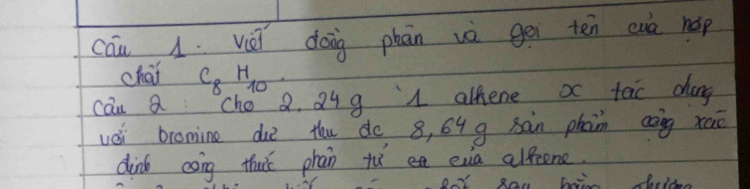 Câu 1. Viết đồng phân và gọi tên của hợp
chất C₈H₁₀.
Câu 2: Cho 2,24g 1 alkene x tác dụng
với bromine dư thu đc 8,64g sản phẩm cộng xác
định công thức phân tử của alkene.